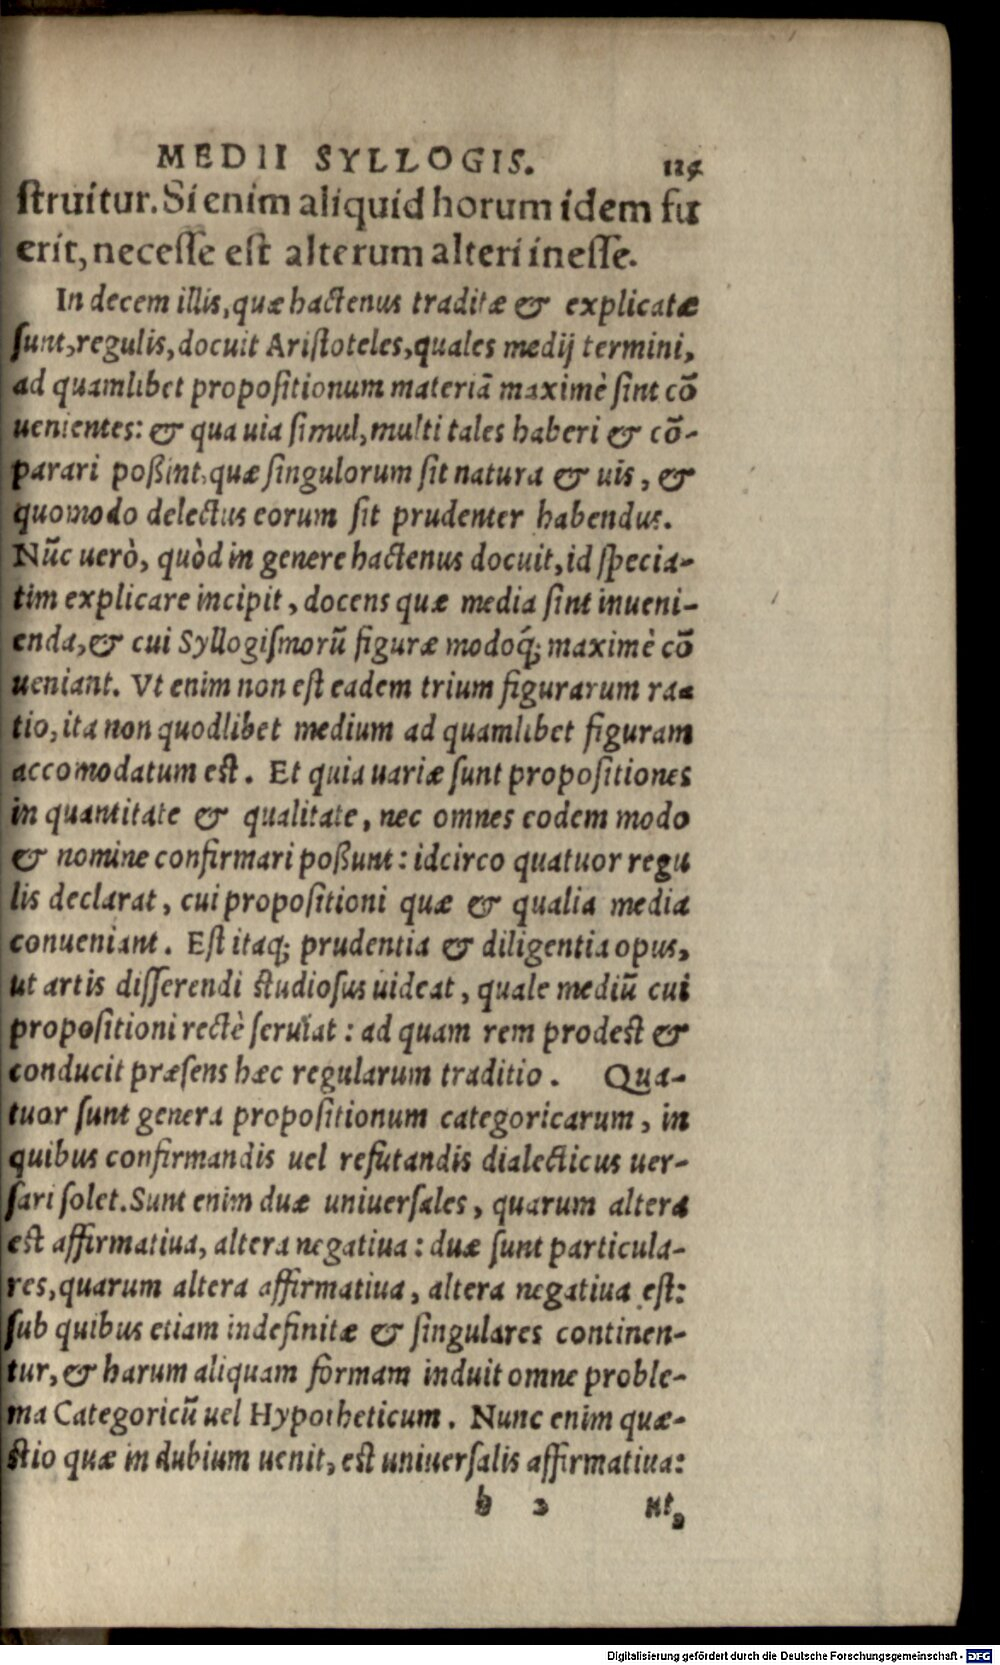 MEDII SYLLOGIS. 125
ſtruitur. Si enim aliquid horum idem fu
erit, neceſſe eſt alterum alteri ineſſe.
In decem illis, quæ hactenus traditæ & explicatæ
ſunt, regulis, docuit Ariſtoteles, quales medij termini,
ad quamlibet propoſitionum materiã maximè ſint cõ
uenientes: & qua uia ſimul, multi tales haberi & cõ-
parari poßint, quæ ſingulorum ſit natura & uis, &
quomodo delectus eorum ſit prudenter habendus.
Nũc uerò, quòd in genere hactenus docuit, id ſpecia-
tim explicare incipit, docens quæ media ſint inueni-
enda, & cui Syllogiſmorũ figuræ modoq́; maximè cõ
ueniant. Vt enim non eſt eadem trium figurarum ra-
tio, ita non quodlibet medium ad quamlibet figuram
accomodatum eſt. Et quia uariæ ſunt propoſitiones
in quantitate & qualitate, nec omnes eodem modo
& nomine confirmari poßunt: idcirco quatuor regu
lis declarat, cui propoſitioni quæ & qualia media
conueniant. Eſt itaq; prudentia & diligentia opus,
ut artis diſſerendi ſtudioſus uideat, quale mediũ cui
propoſitioni rectè ſeruiat: ad quam rem prodeſt &
conducit præſens hæc regularum traditio. Qua-
tuor ſunt genera propoſitionum categoricarum, in
quibus confirmandis uel refutandis dialecticus uer-
ſari ſolet. Sunt enim duæ uniuerſales, quarum altera
eſt affirmatiua, altera negatiua: duæ ſunt particula-
res, quarum altera affirmatiua, altera negatiua eſt:
ſub quibus etiam indefinitæ & ſingulares continen-
tur, & harum aliquam formam induit omne proble-
ma Categoricũ uel Hypotheticum. Nunc enim quæ-
ſtio quæ in dubium uenit, eſt uniuerſalis affirmatiua:
h 2 ut,
Digitalisierung gefördert durch die Deutsche Forschungsgemeinschaft - DFG